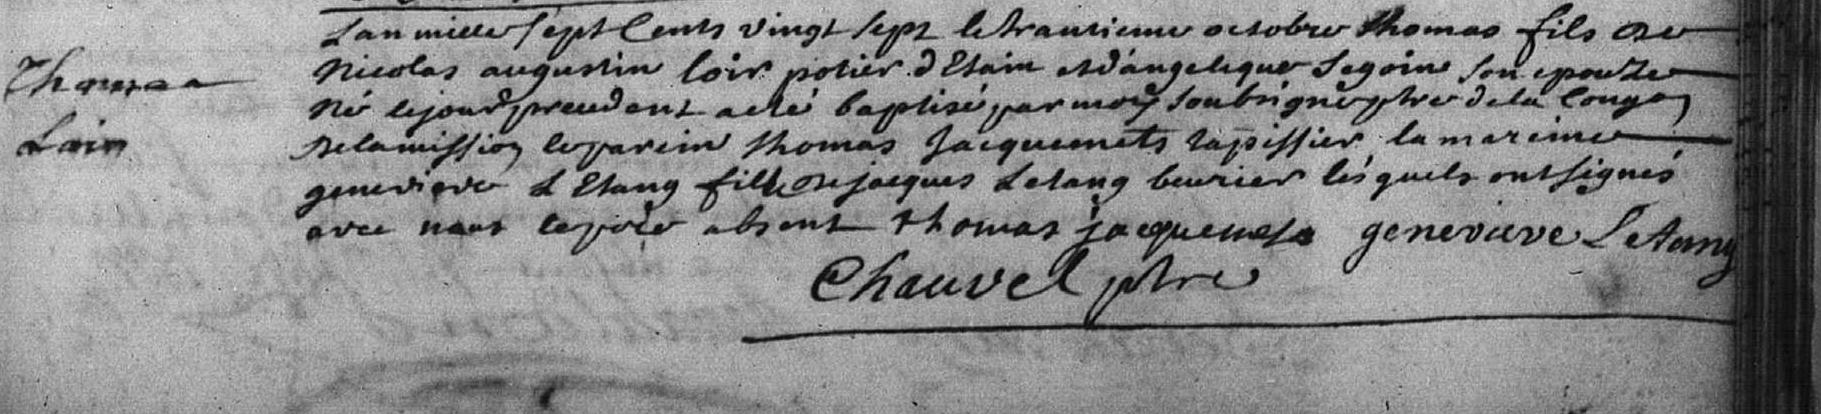 L'an mille sept Cents vingt sept le trantieme octobre thomas fils de
Thomas
Nicolas augustin loir potier d'Etain et d'angelique Segoin son epouze
Né le jour precedent a eté baptisé par moy soubsigné ptre de la Cong⁠on
Loir
de la mission le parein thomas Jacquemets tapissier la mareine
genevieve L'Etang fille de jacques Letang beurier lesquels ont signés
avec nous le pere absent thomas jacquemets genevieve Letang
Chauvel ptre